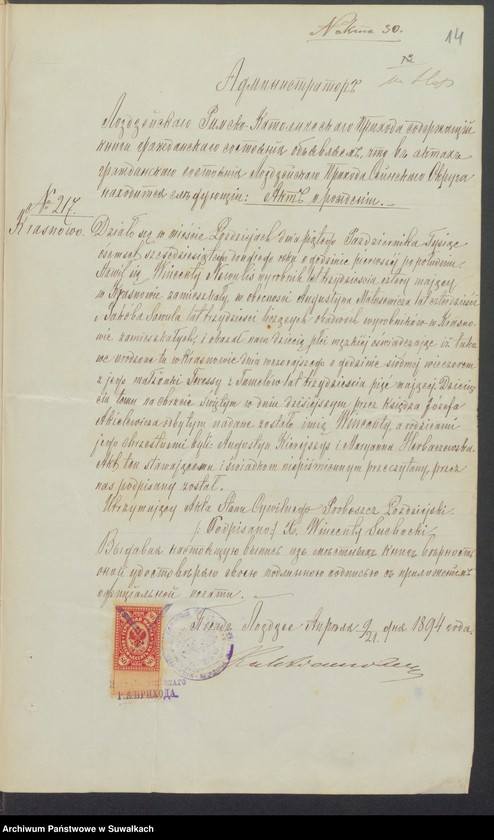 № акта 30.
14
Администраторъ
Лоздзейскаго Римско-Католическаго Прихода содержащій
книги гражданскаго состоянія объявляетъ, что въ актахъ
гражданскаго состоянія Лоздзейскаго Прихода Сейнскаго Округа
находится слѣдующій: Актъ о рожденіи.
№ 217.
Krasnowo.
Działo się w mieście Łoździejach dnia piątego Października Tysiąc
ośmset sześćdziesiątego drugiego roku o godzinie pierwszej po południu.
Stawił się Wincenty wyrobnik lat trzydzieści cztery mający
w Krasnowie zamieszkały, w obecności Augustyna lat czterdzieści
i Jakóba Sawula lat trzydzieści liczących obudwóch wyrobników w Krasno-
wie zamieszkałych; i okazał nam dziecię płci męzkiej oświadczając iż tako-
we urodzone tu w Krasnowie dnia wczorajszego o godzinie siódmej wieczorem
z jego małżonki Teressy z lat trzydzieścia pięć mającej. Dziecię-
ciu temu na chrzcie świętym w dniu dzisiejszym przez księdza Józefa
odbytym nadane zostało imię Wincenty, a rodzicami
jego chrzestnemi byli Augustyn i Maryanna
Akt ten stawającemu i świadkom niepiśmiennym przeczytany, przez
nas podpisany został.
Utrzymujący Akta Stanu Cywilnego Proboszcz Łoździejski
/: Podpisano:/ X. Wincenty Suchocki
Выдавая настоящую выпись изъ мѣстныхъ книгъ вѣрность
оной удостовѣряю своею подлинною подписью съ приложеніемъ
официальной печати.
Лоздзее Апрѣля 9/21 дня 1894 года.
ПРИХОДА.
Archiwum Państwowe w Suwałkach